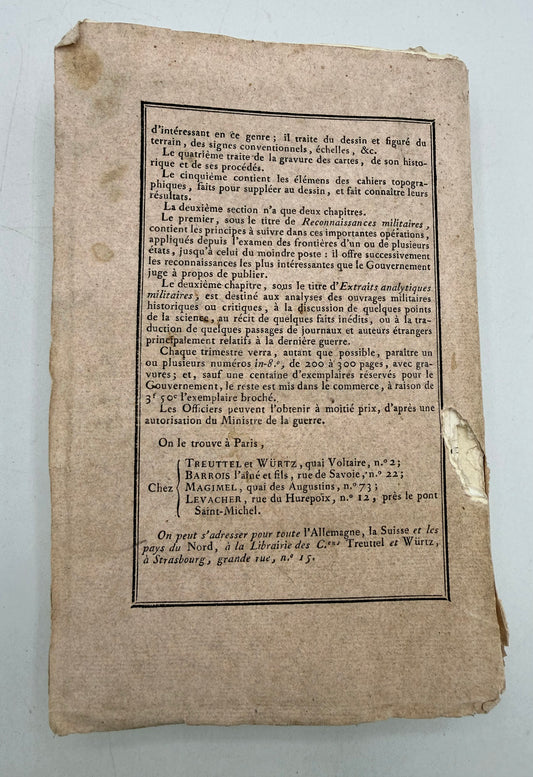 d'intéressant en ce genre ; il traite du dessin et figuré du
terrain, des signes conventionnels, échelles, &c.
Le quatrième traite de la gravure des cartes, de son histo-
rique et de ses procédés.
Le cinquième contient les élémens des cahiers topogra-
phiques, faits pour suppléer au dessin, et fait connaître leurs
résultats.
La deuxième section n'a que deux chapitres.
Le premier, sous le titre de Reconnaissances militaires,
contient les principes à suivre dans ces importantes opérations,
appliqués depuis l'examen des frontières d'un ou de plusieurs
états, jusqu'à celui du moindre poste : il offre successivement
les reconnaissances les plus intéressantes que le Gouvernement
juge à propos de publier.
Le deuxième chapitre, sous le titre d'Extraits analytiques
militaires, est destiné aux analyses des ouvrages militaires
historiques ou critiques, à la discussion de quelques points
de la science, au récit de quelques faits inédits, ou à la tra-
duction de quelques passages de journaux et auteurs étrangers
principalement relatifs à la dernière guerre.
Chaque trimestre verra, autant que possible, paraître un
ou plusieurs numéros in-8.º, de 200 à 300 pages, avec gra-
vures ; et, sauf une centaine d'exemplaires réservés pour le
Gouvernement, le reste est mis dans le commerce, à raison de
3f 50c l'exemplaire broché.
Les Officiers peuvent l'obtenir à moitié prix, d'après une
autorisation du Ministre de la guerre.
On le trouve à Paris,
Chez
TREUTTEL et WÜRTZ, quai Voltaire, n.º 2 ;
BARROIS l'aîné et fils, rue de Savoie, n.º 22 ;
MAGIMEL, quai des Augustins, n.º 73 ;
LEVACHER, rue du Hurepoix, n.º 12, près le pont
Saint-Michel.
On peut s'adresser pour toute l'Allemagne, la Suisse et les
pays du Nord, à la Librairie des C.ens Treuttel et Würtz,
à Strasbourg, grande rue, n.º 15.